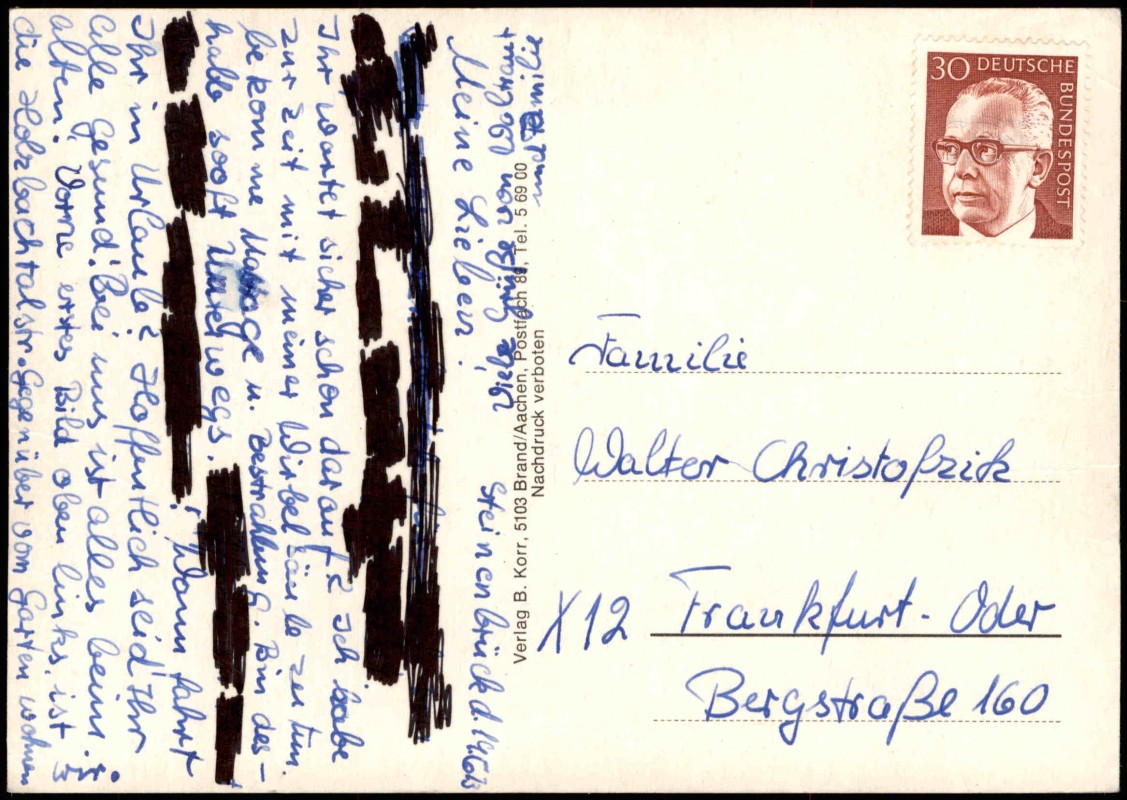 Steinenbrück d. 19.6.73
Meine Lieben!
Ihr wartet sicher schon darauf? Ich habe
zur Zeit mit meiner Wirbelsäule zu tun
bekomme Massage u. Bestrahlung. Bin des-
halb sooft Unterwegs.
Wann fahrt
Ihr in Urlaub? Hoffentlich seid Ihr
Alle Gesund! Bei uns ist alles beim
alten. Vorne erstes Bild oben links, ist
die Holzbachtalstr. Gegenüber vom Garten wohnen
Viele Grüße von Eurer
und Familie
Verlag B. Korr, 5103 Brand/Aachen, Postfach 89, Tel. 5 69 00
Nachdruck verboten
30 DEUTSCHE
BUNDESPOST
Familie
Walter Christofzik
X12 Frankfurt-Oder
Bergstraße 160